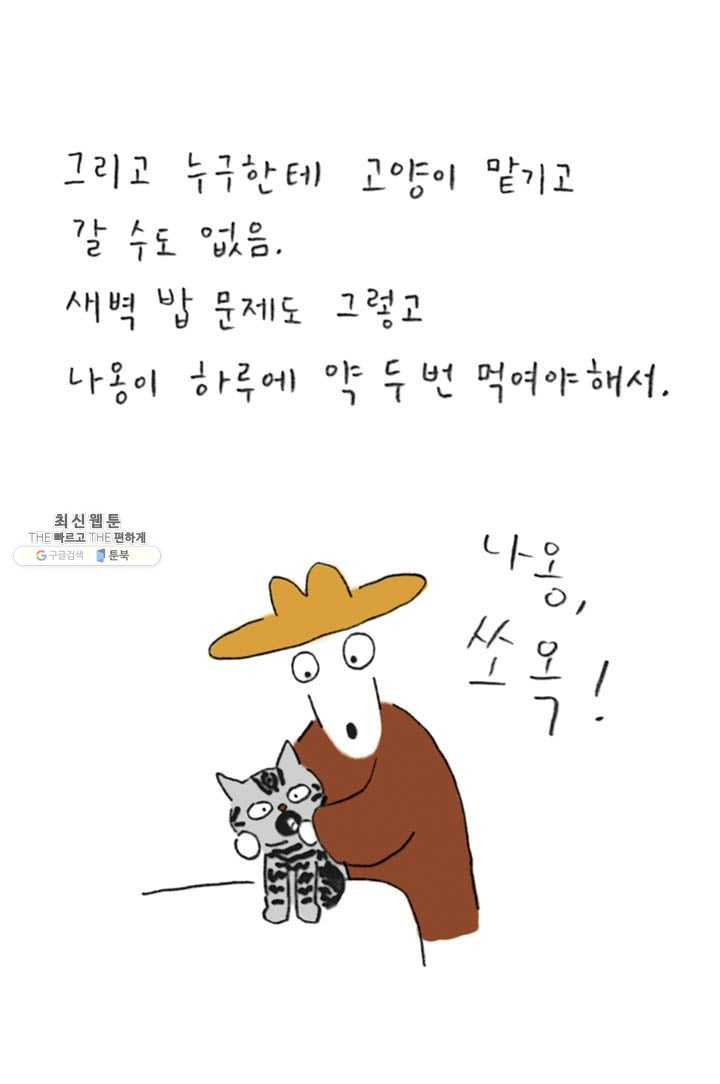 그리고 누구한테 고양이 맡기고
갈 수도 없음.
새벽 밥 문제도 그렇고
나옹이 하루에 약 두 번 먹여야해서.
최신웹툰
THE 빠르고 THE 편하게
구글검색 툰북
나옹,
쏘옥!